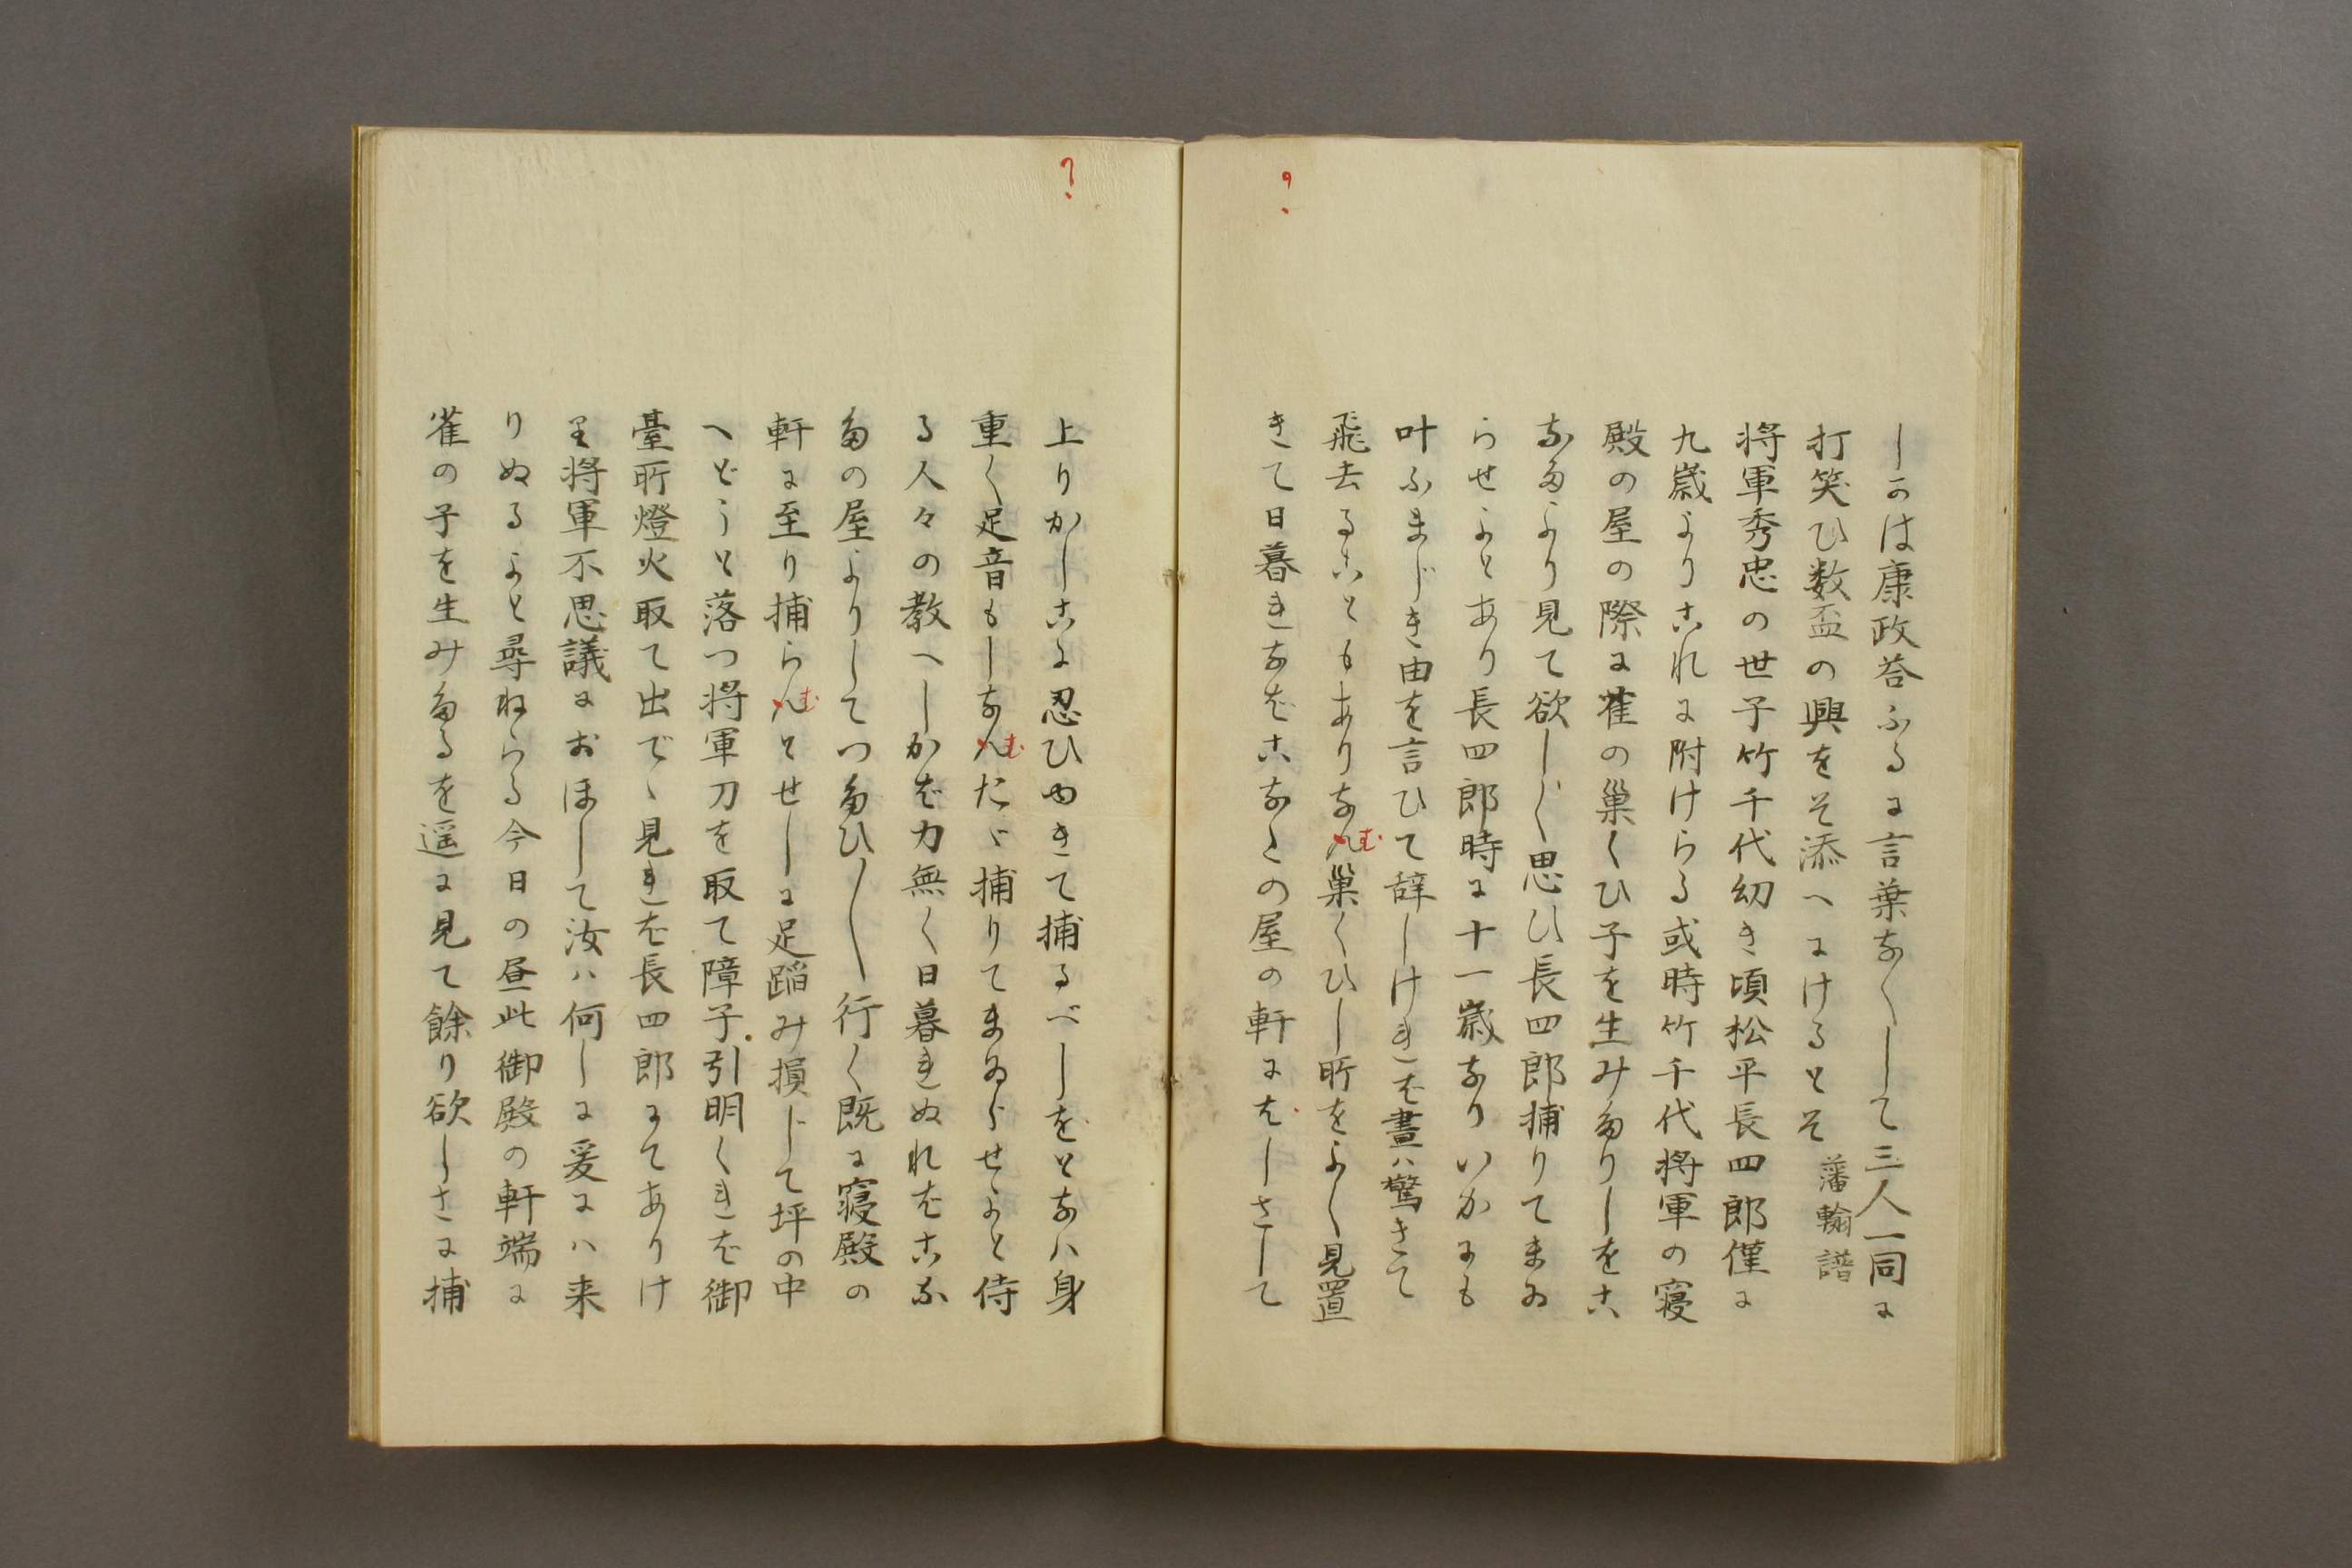 ?
しかは康政荅ふるに言葉なくして三人一同に
打笑ひ数盃の興をそ添へにけるとそ 藩翰譜
将軍秀忠の世子竹千代幼き頃松平長四郎僅に
九歳よりこれに附けらる或時竹千代将軍の寝
殿の屋の際に雀の巣くひ子を生みたりしをこ
なたより見て欲しく思ひ長四郎捕りてまゐ
らせよとあり長四郎時に十一歳なりいかにも
叶ふまじき由を言ひて辞しければ晝ハ驚きて
飛去ることもありなんむ巣くひし所をよく見置
きて日暮れなばこなたの屋の軒にはしさして
?
上りかしこに忍ひゆきて捕るべしをとなハ身
重く足音もしなんむたゞ捕りてまゐらせよと侍
る人々の教へしかば力無く日暮れぬればこな
たの屋よりしてつたひ〳〵行く既に寝殿の
軒に至り捕らんむとせしに足蹈み損じて坪の中
へどうと落つ将軍刀を取て障子引明くれば御
臺所燈火取て出でゝ見れば長四郎にてありけ
り将軍不思議におほして汝ハ何しに爰にハ来
りぬるよと尋ねらる今日の昼此御殿の軒端に
雀の子を生みたるを遥に見て餘り欲しさに捕